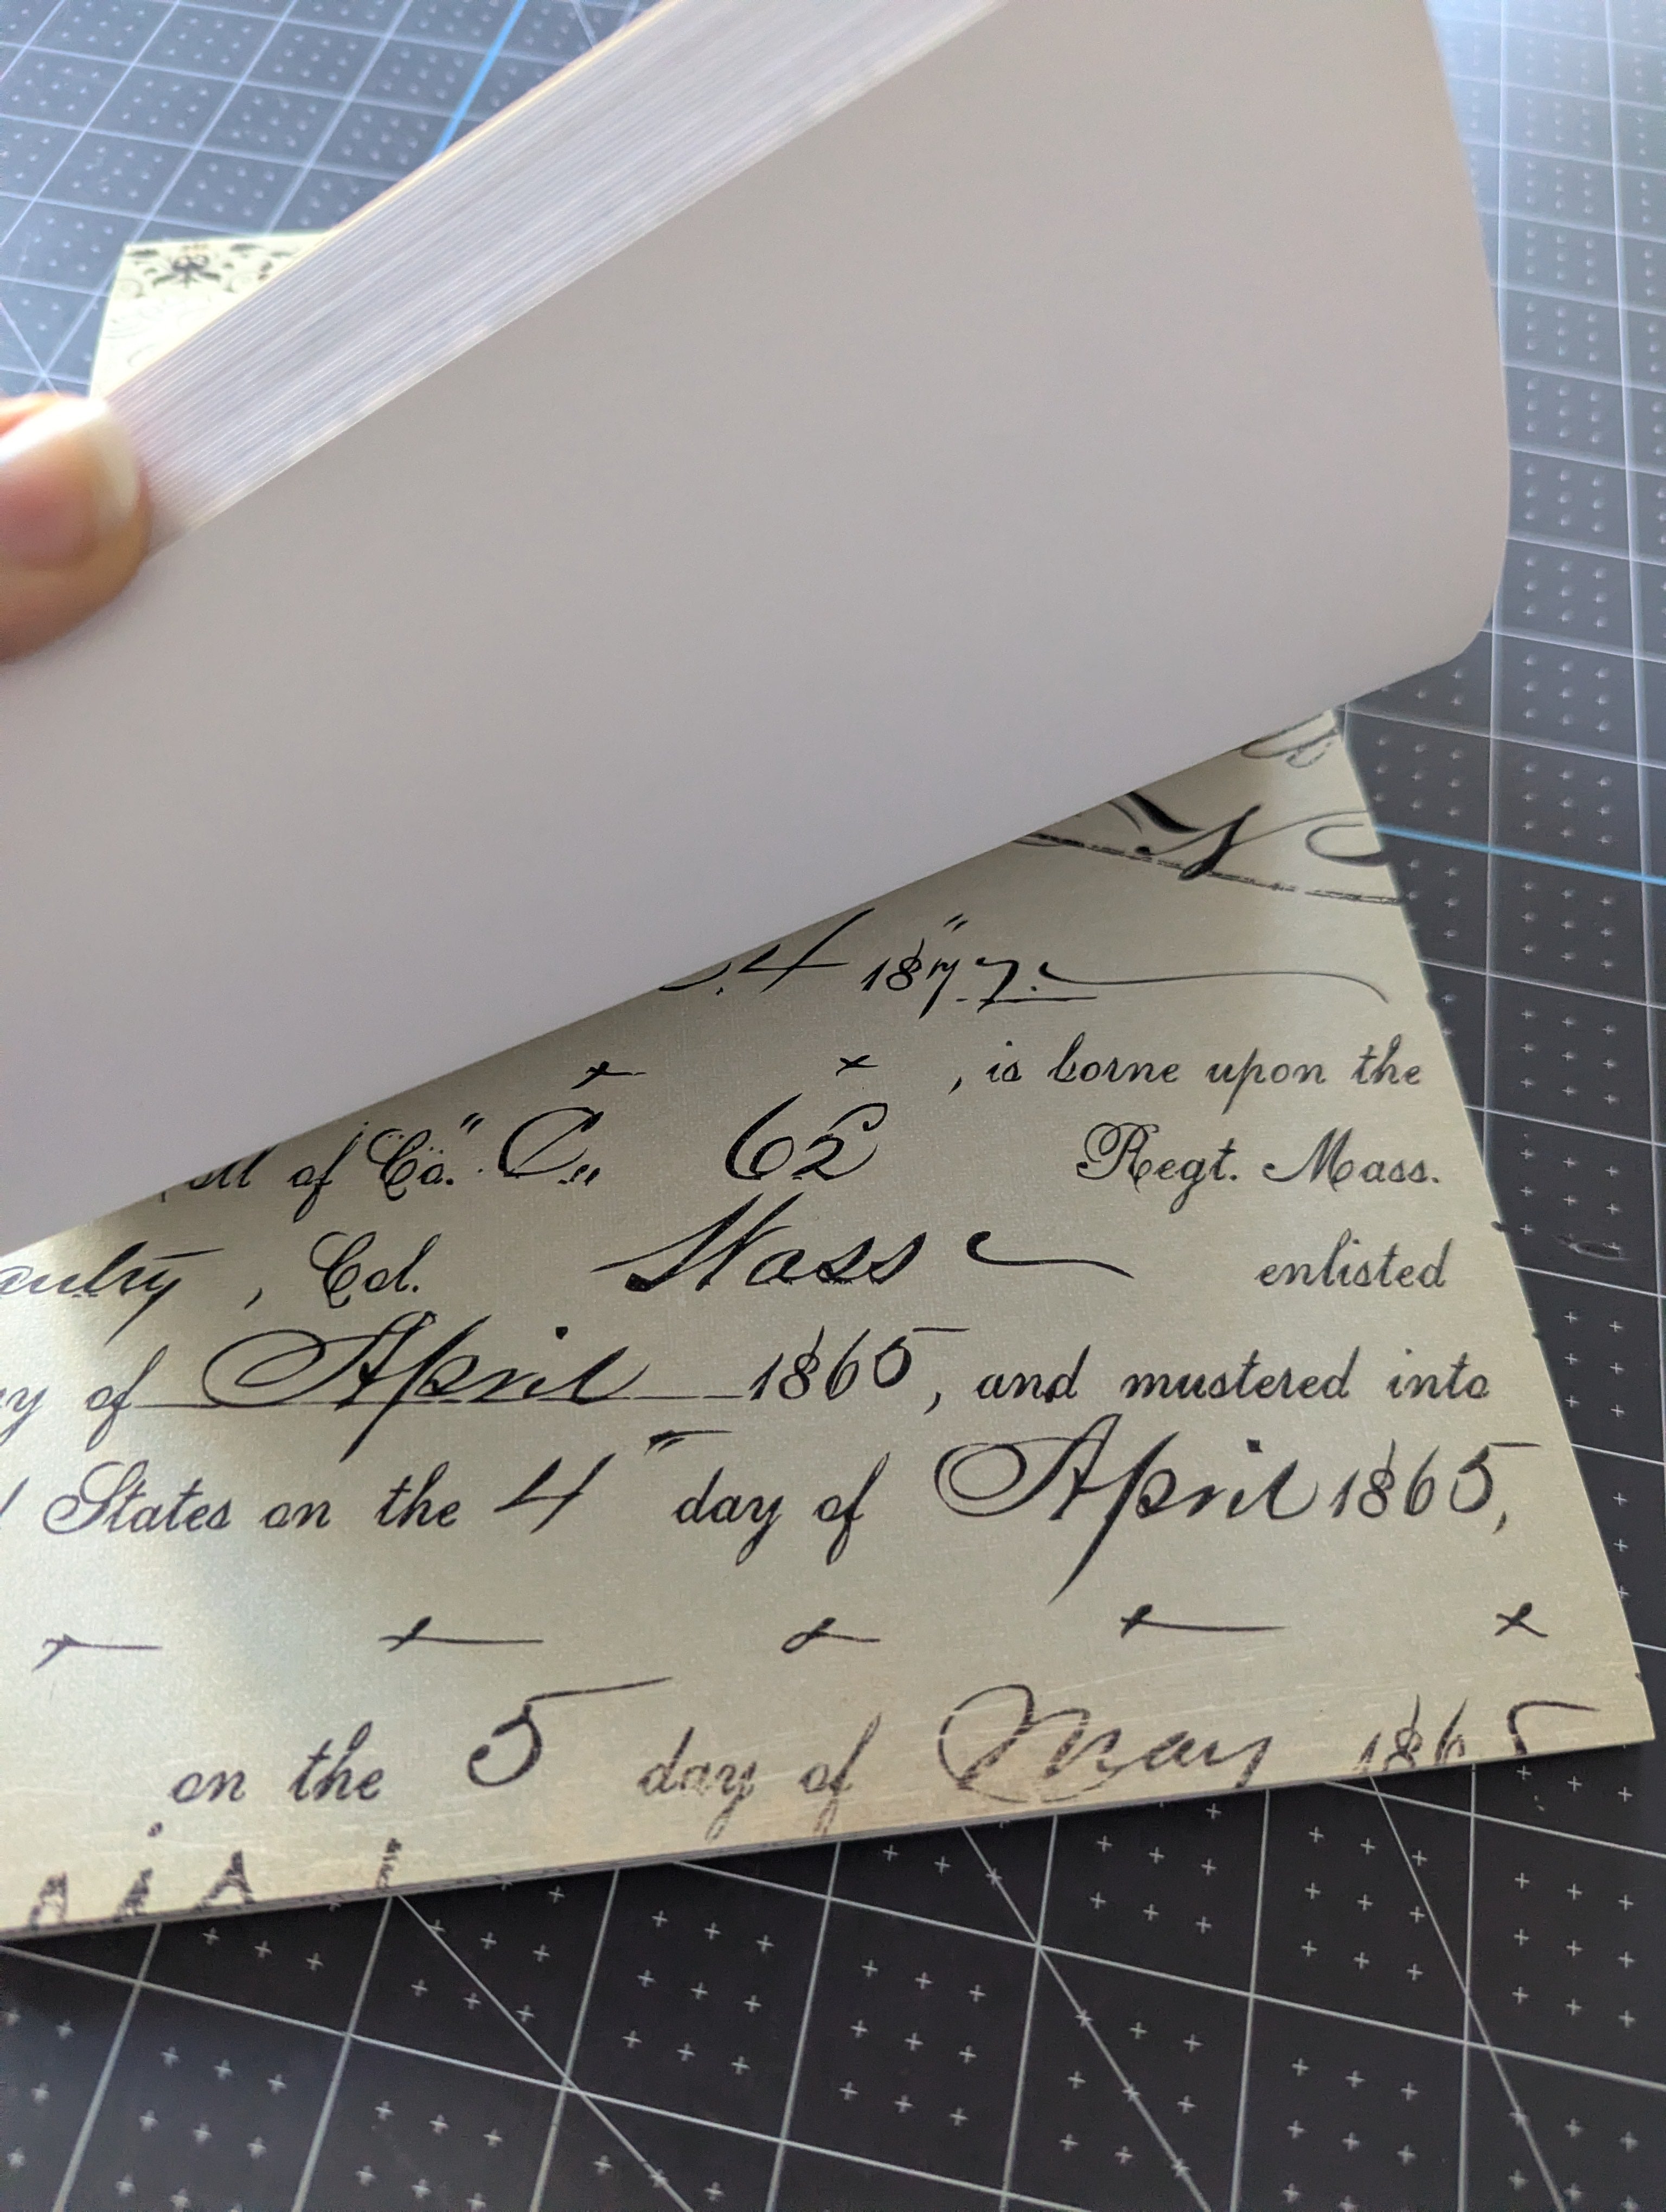 4" 1877.
, is borne upon the
of Co. "C„ 62 Regt. Mass.
, Col. Mass enlisted
of April 1865, and mustered into
States on the 4" day of April 1865,
on the 5 day of May 1865